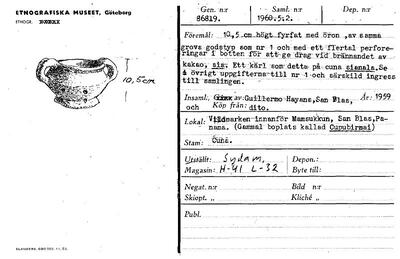 ETNOGRAFISKA MUSEET, Göteborg
ETNOGR.
10,5cm
Gen. n:r 86819.
Saml. n:r 1960.5.2.
Dep. n:r
Föremål: 10,5 cm högt fyrfat med öron, av samma
grova godstyp som nr 1 och med ett flertal perfore-
ringar i botten för att ge drag vid brännandet av
kakao, sia; Ett kärl som detta på cuna sianala. Se
å övrigt uppgifterna till nr 1 och särskild ingress
till samlingen.
Insaml. av: Guillermo Hayans, San Blas, År: 1959
och Köp från: dito.
Lokal: Vildmarken innanför Mamsukkun, San Blas, Pa-
nama. (Gammal boplats kallad Cupubirmai)
Stam: Cuna.
Utställt: Sydam, Depon.:
Magasin: H-41 L-32 Byte till:
Negat. n:r Bild n:r
Skiopt. „ Kliché „
Publ.